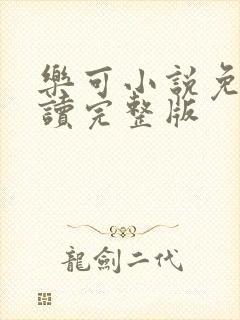 樂可小説免
讀完整版
龍劍二代